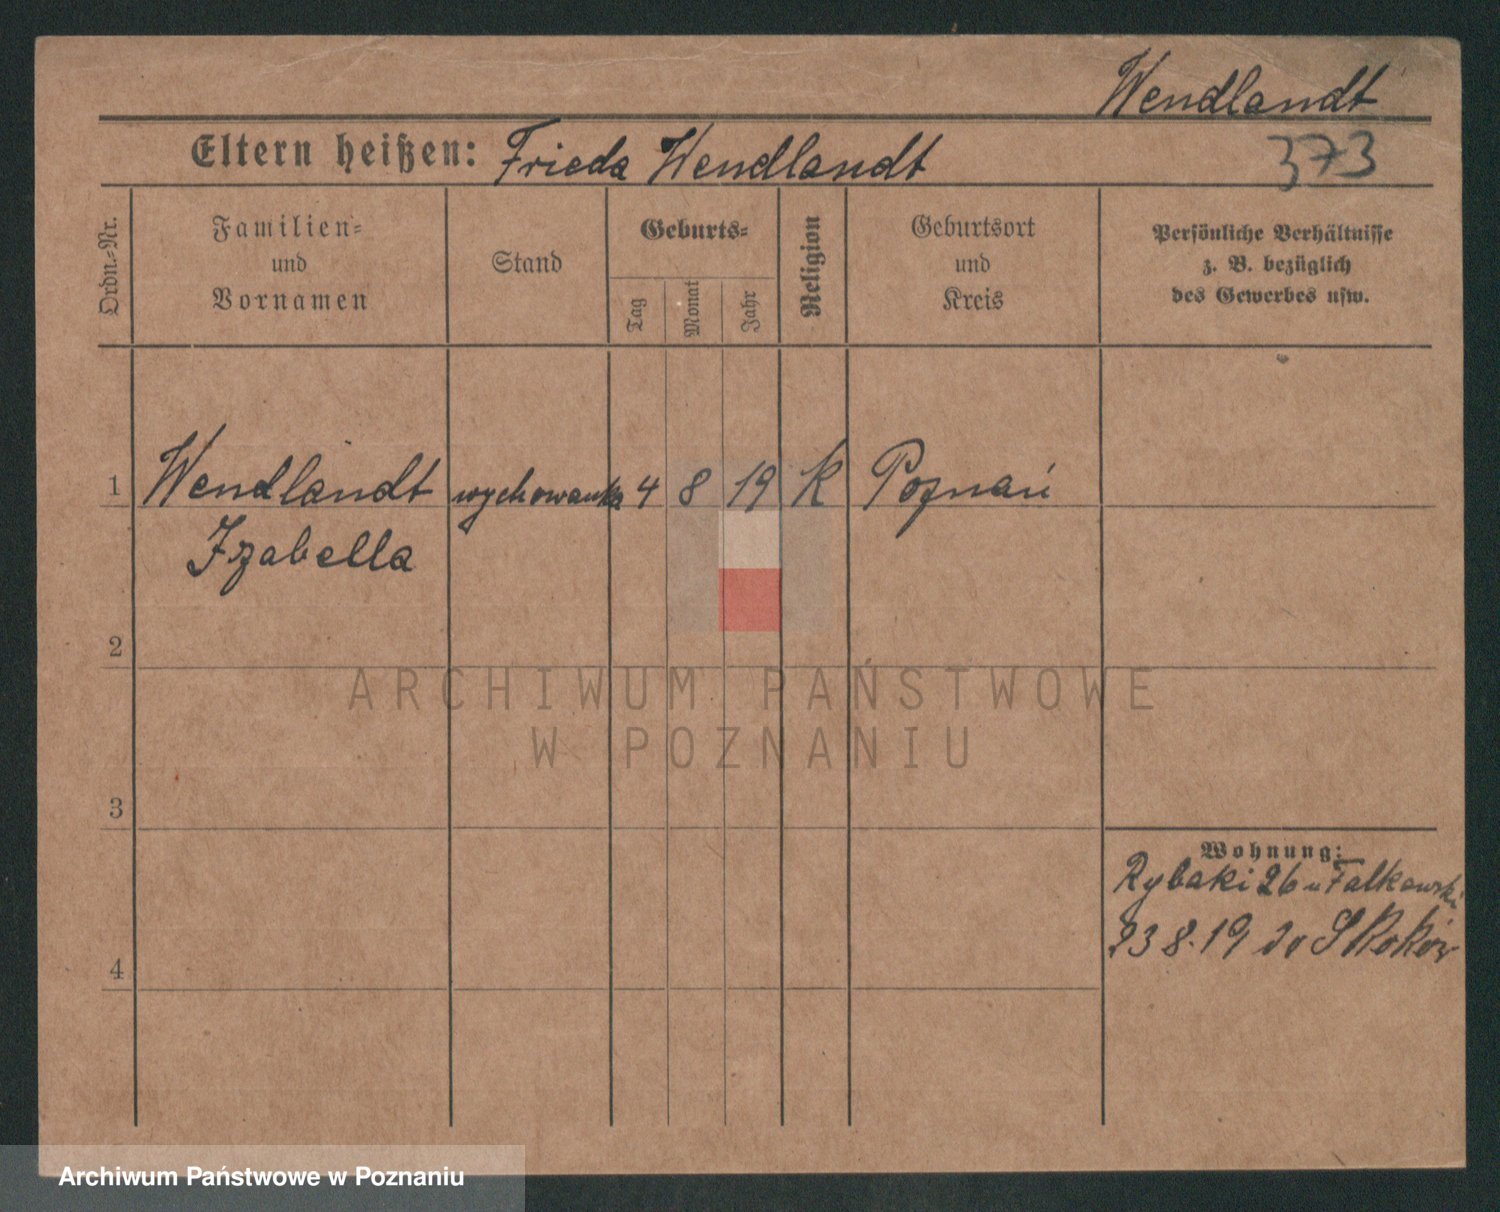 Wendlandt
Eltern heißen: Frieda Wendlandt
373
Ordn.-Nr.
Familien-
und
Vornamen
Stand
Geburts-
Tag
Monat
Jahr
Religion
Geburtsort
und
Kreis
Persönliche Verhältnisse
z. B. bezüglich
des Gewerbes usw.
1 Wendlandt wychowanka 4 8 19 K Poznań
Izabella
2
ARCHIWUM PAŃSTWOWE
W POZNANIU
3
Wohnung:
Rybaki 26 u Falkowski
23 8. 19 do Skoków
4
Archiwum Państwowe w Poznaniu